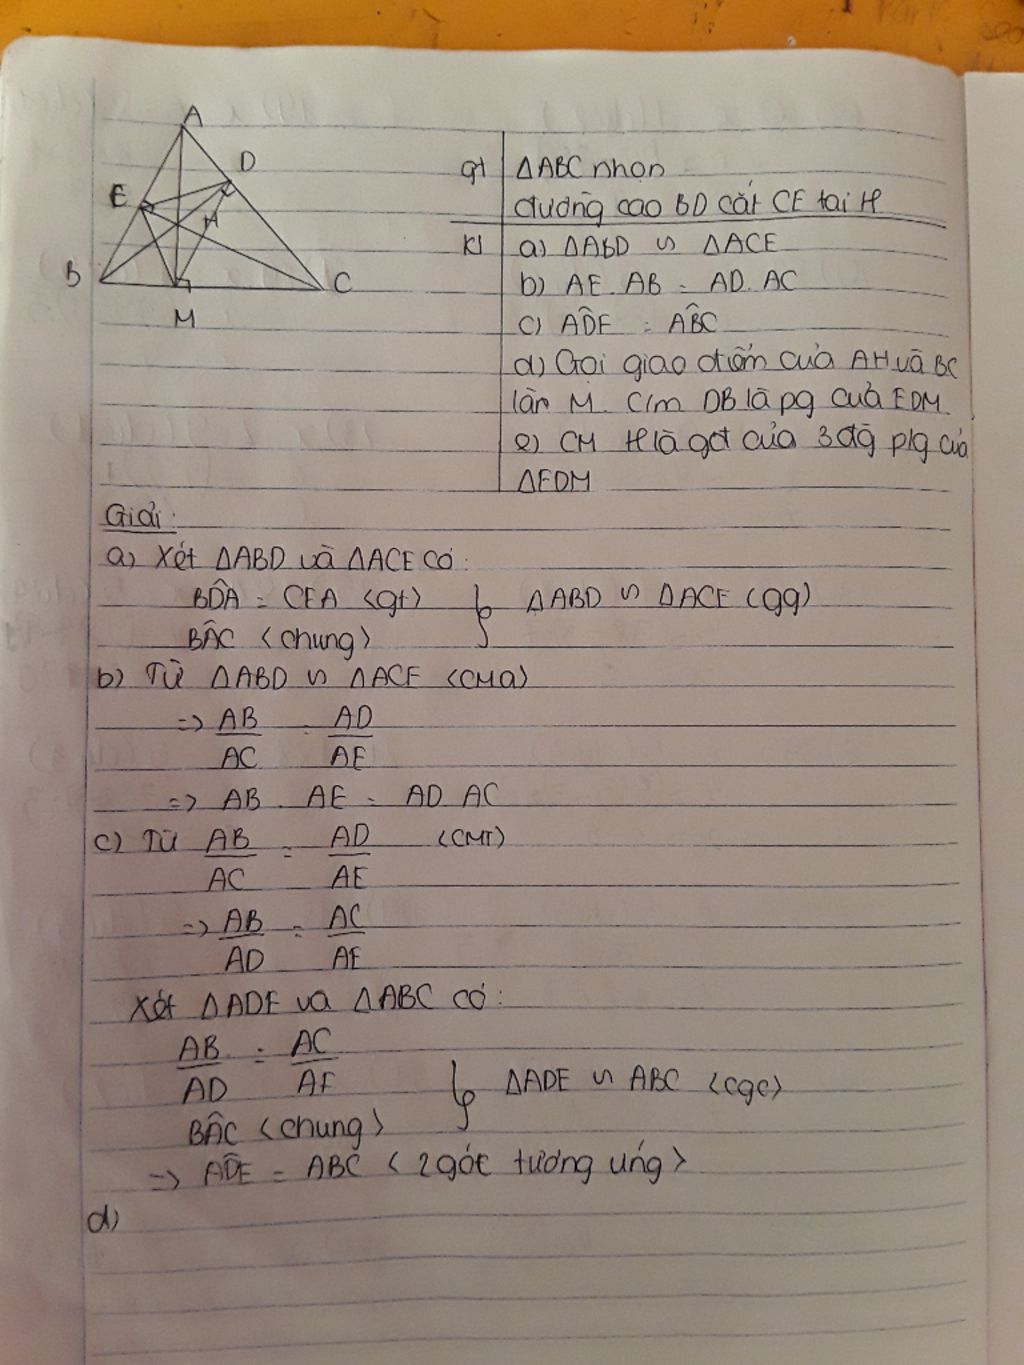 A
D
E
H
B
C
M
gt ΔABC nhọn
đường cao BD cắt CE tại H
Kl a) ΔABD ∽ ΔACE
b) AE . AB = AD . AC
c) ADÊ = ABĈ
d) Gọi giao điểm của AH và BC
lần M. C/m DB là pg của EDM
e) CM H là gđ của 3 đg p/g của
ΔEDM
Giải:
a) Xét ΔABD và ΔACE có:
BD̂A = CEA <gt> } ΔABD ∽ ΔACE (gg)
BÂC <chung>
b) Từ ΔABD ∽ ΔACE <CMa>
=> AB/AC = AD/AE
=> AB . AE = AD AC
c) Từ AB/AC = AD/AE <CMT>
=> AB/AD = AC/AE
Xét ΔADE và ΔABC có:
AB/AD = AC/AE } ΔADE ∽ ABC <cgc>
BÂC <chung>
=> AD̂E = AB̂C < 2 góc tương ứng >
d)